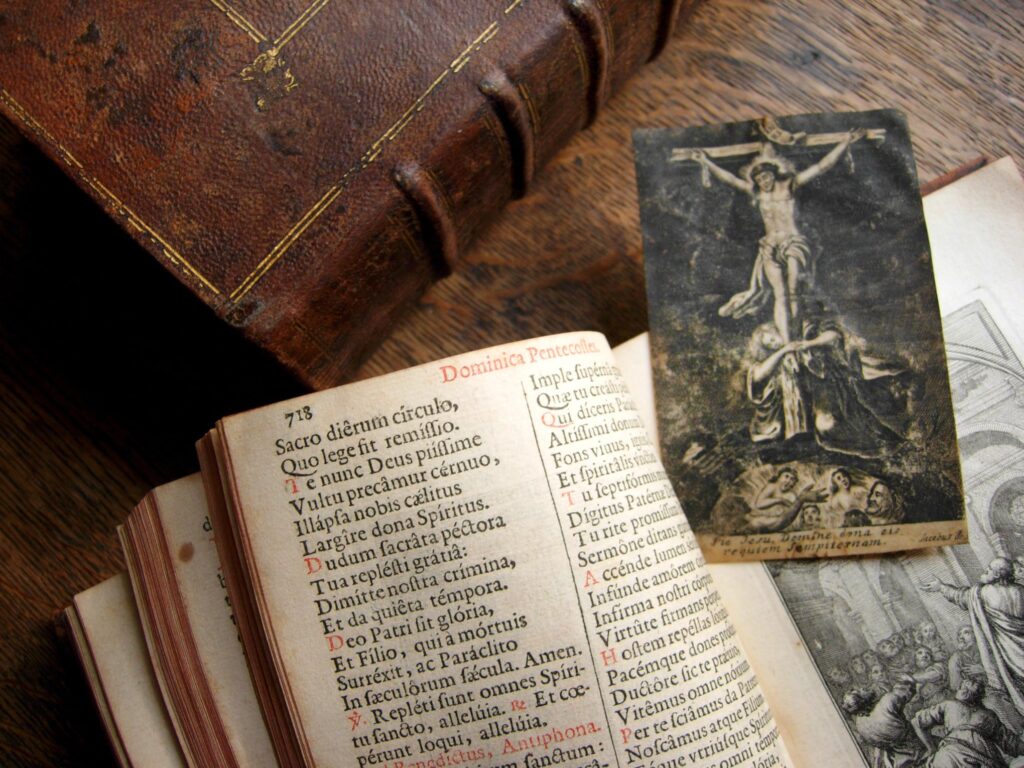 718
Dominica Pentecoſtes.
Sacro diêrum círculo,
Quo lege ſit remíſſio.
Te nunc Deus piíſſime
Vultu precâmur cérnuo,
Illápſa nobis cælitus
Largíre dona Spíritus.
Dudum ſacráta péctora
Tua repléſti grátiâ:
Dimítte noſtra crímina,
Et da quiêta témpora.
Deo Patri ſit glória,
Et Fílio, qui à mórtuis
Surréxit, ac Paráclito
In ſæculôrum ſæcula. Amen.
℣. Repléti ſunt omnes Spíri-
tu ſancto, allelúia. ℟. Et cœ-
pérunt loqui, allelúia.
Benedíctus, Antiphona.
ſanctum:
Imple ſupérna
Quæ tu creáſti
Qui díceris
Altíſſimi donum
Fons viuus, ignis
Et ſpiritâlis
Tu ſeptifórmis
Dígitus Patérnæ
Tu rite promíſſum
Sermône ditans
Accénde lumen
Infúnde amôrem
Infírma noſtri
Virtûte firmans
Hoſtem repéllas
Pacémque dones
Ductôre ſic te
Vitêmus omne
Per te ſciâmus da
Noſcâmus atque
Téque vtriúſque
omni
Pie Jesu, Domine dona eis
requiem sempiternam.